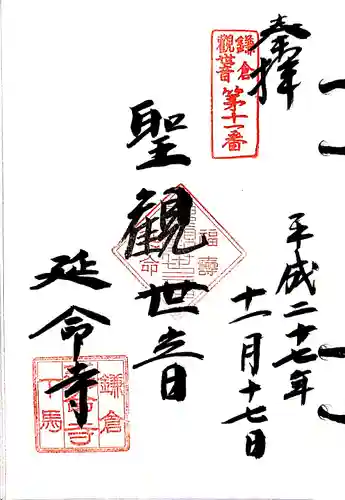 奉拝
鎌倉
観世音
第十一番
平成二十七年
十一月十七日
聖観世音
福壽
延命寺
鎌倉
下馬